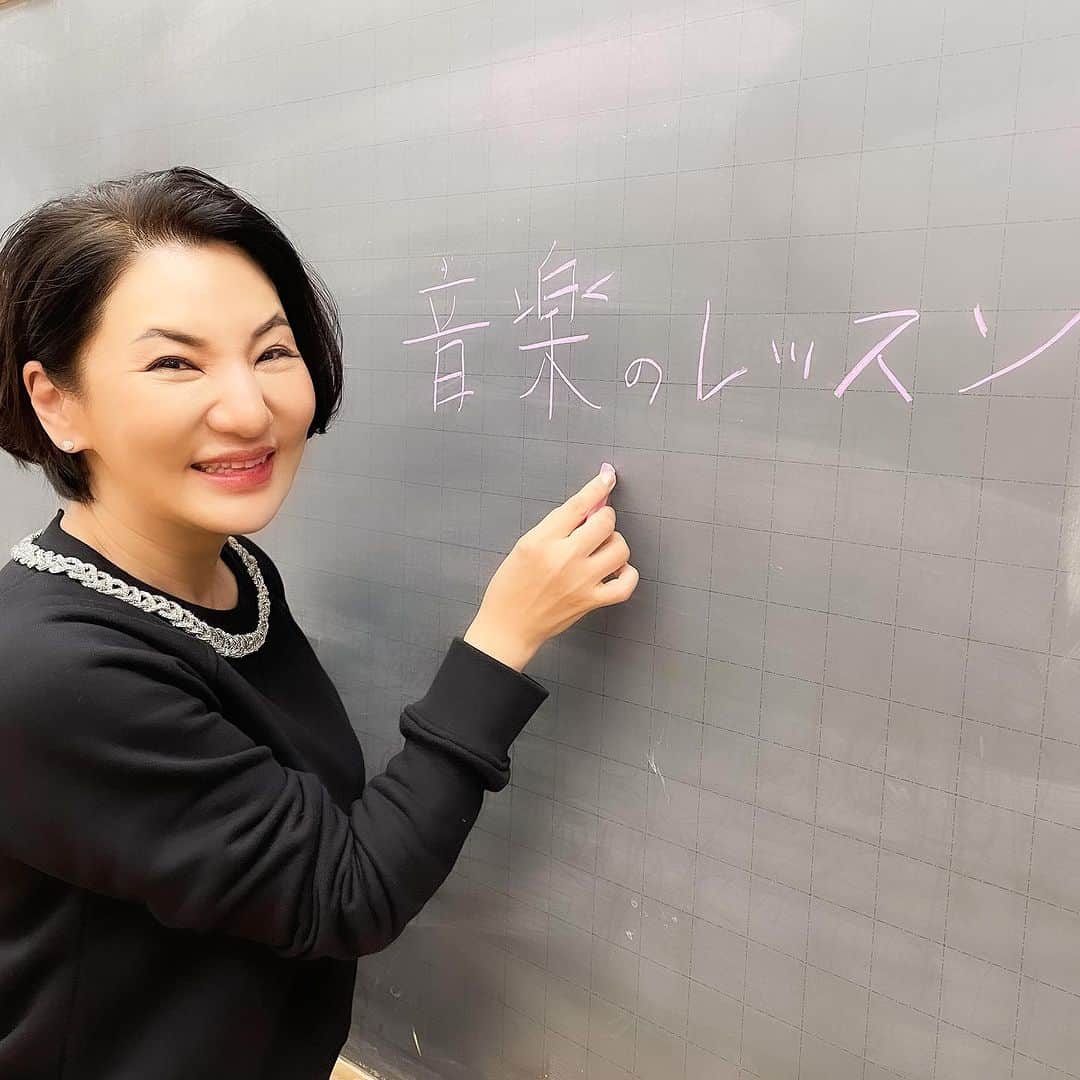 音楽のレッスン